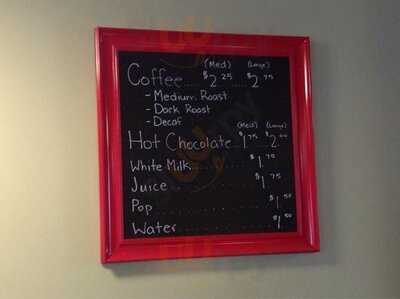 (Med) (Large)
Coffee..... $2.25 $2.75
- Medium Roast
- Dark Roast
- Decaf
(Med) (Large)
Hot Chocolate... $1.75 $2.00
White Milk........ $1.70
Juice............. $1.75
Pop............... $1.50
Water............. $1.50